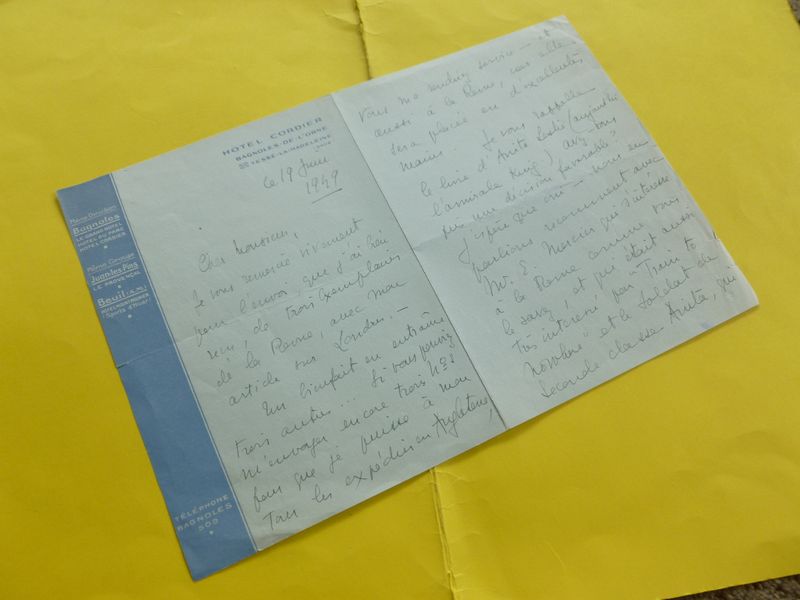 HOTEL CORDIER
BAGNOLES-DE-L'ORNE
TESSÉ-LA-MADELEINE
Même Direction
Bagnoles
LE GRAND HOTEL
HOTEL DU PARC
HOTEL CORDIER
Même Groupe
Juan-les-Pins
LE PROVENÇAL
Beuil (A.M.)
HOTEL MONT MOUNIER
(Sports d'Hiver)
TÉLÉPHONE
BAGNOLES
505
le 19 Juin
1949
Cher Monsieur,
Je vous remercie vivement
pour l'envoi que j'ai bien
reçu, de trois exemplaires
de la Revue, avec mon
article sur Londres. —
Un bienfait en entraîne
trois autres... Si vous pouviez
m'envoyer encore trois Nos
pour que je puisse à mon
Tour les expédier en Angleterre,
vous me rendriez service — et
aussi à la Revue, car elle
sera placée en d'excellentes
mains. Je vous rappelle
le livre d'Anita Leslie (aujourd'hui
l'amirale King) avez vous
pris une décision favorable?
J'espère que oui — nous en
parlions récemment avec
Mr. E. Mercier qui s'intéresse
à la Revue comme vous
le savez et qui était aussi
très intéressé par "Train to
Nowhere" et le soldat de
seconde classe Anita, qui